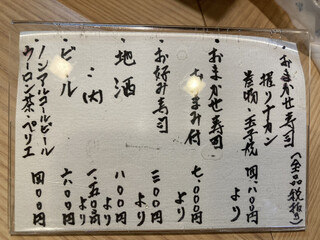 ・おまかせ寿司 (全品税抜き)
握り十カン
巻物・玉子焼 四.八〇〇円より
・おまかせ寿司
つまみ付 七.〇〇〇円より
・お好み寿司 三〇〇円より
・地酒 八〇〇円より
一.五〇〇円より
・ビール 六〇〇円
・ノンアルコールビール
ウーロン茶・ペリエ 四〇〇円